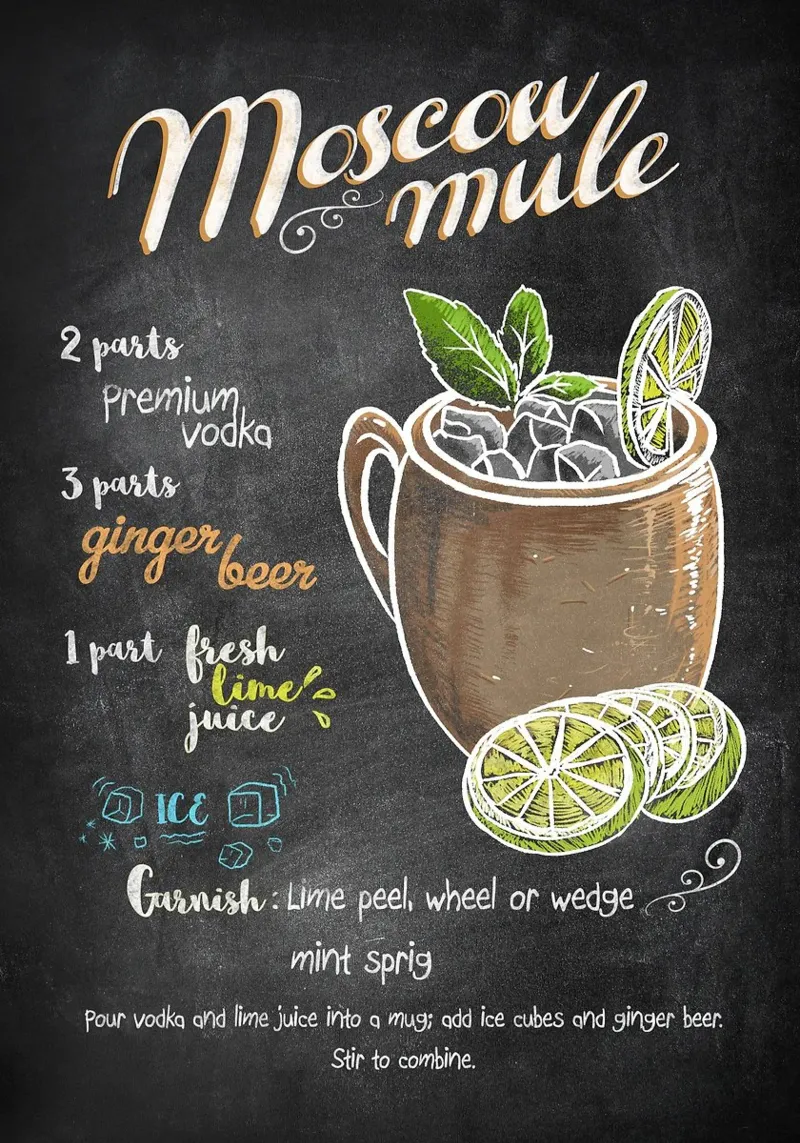 Moscow
mule
2 parts
Premium
vodka
3 parts
ginger
beer
1 part fresh
lime
juice
ICE
Garnish: Lime peel, wheel or wedge
mint sprig
Pour vodka and lime juice into a mug; add ice cubes and ginger beer.
Stir to combine.